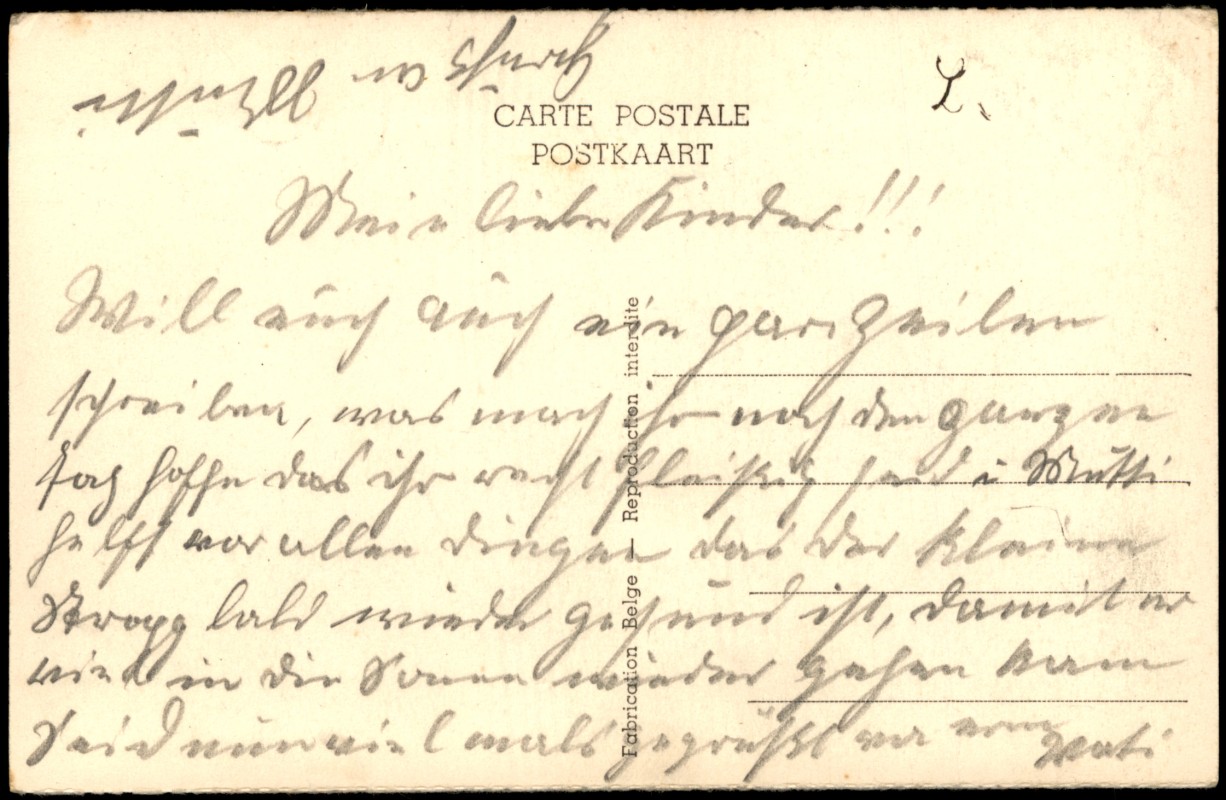 CARTE POSTALE
POSTKAART
Meine liebe Kinder!!!
Will euch auch ein paar Zeilen
schreiben, was mach ihr noch den ganzen
Tag hoffe das ihr recht fleißig seid u Mutti
helft vor allen dingen das der kleine
Stropp bald wieder gesund ist, damit er
viel in die Sonne wieder gehen kann
Seid nun viel mals gegrüßt von eurem Vati
Fabrication Belge — Reproduction interdite
L.